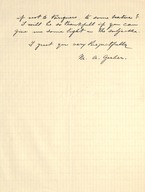 if not to Burgess to some Station &
I will be so thankful if you can
give me some light on the subject.
I greet you very Respectfully
M. A.